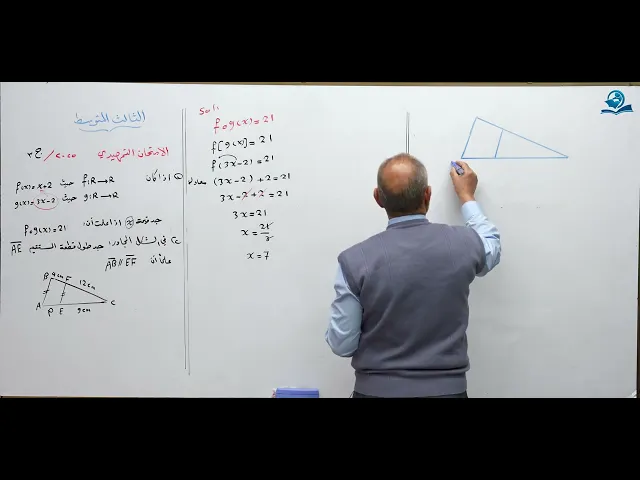 الثالث المتوسط
الامتحان التمهيدي ٢٠٢٥ / ح ٢
① اذا كان f: R → R حيث f(x) = x+2
g: R → R حيث g(x) = 3x-2
جد قيمة x اذا علمت ان: f∘g(x) = 21
في الشكل المجاور: جد طول قطعة المستقيم AE
علماً أن AB // EF
B 9cm F 12cm C
A P E 9cm
Sol:
f∘g(x) = 21
f[g(x)] = 21
f(3x-2) = 21
(3x-2) + 2 = 21
3x - 2 + 2 = 21
3x = 21
x = 21/3
x = 7